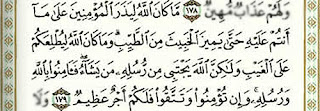 وَلَهُمْ عَذَابٌ مُّهِينٌ ١٧٨ مَّا كَانَ ٱللَّهُ لِيَذَرَ ٱلْمُؤْمِنِينَ عَلَىٰ مَآ
أَنتُمْ عَلَيْهِ حَتَّىٰ يَمِيزَ ٱلْخَبِيثَ مِنَ ٱلطَّيِّبِ ۗ وَمَا كَانَ ٱللَّهُ لِيُطْلِعَكُمْ
عَلَى ٱلْغَيْبِ وَلَٰكِنَّ ٱللَّهَ يَجْتَبِى مِن رُّسُلِهِۦ مَن يَشَآءُ ۖ فَـَٔامِنُوا۟ بِٱللَّهِ
وَرُسُلِهِۦ ۚ وَإِن تُؤْمِنُوا۟ وَتَتَّقُوا۟ فَلَكُمْ أَجْرٌ عَظِيمٌ ١٧٩ وَلَا